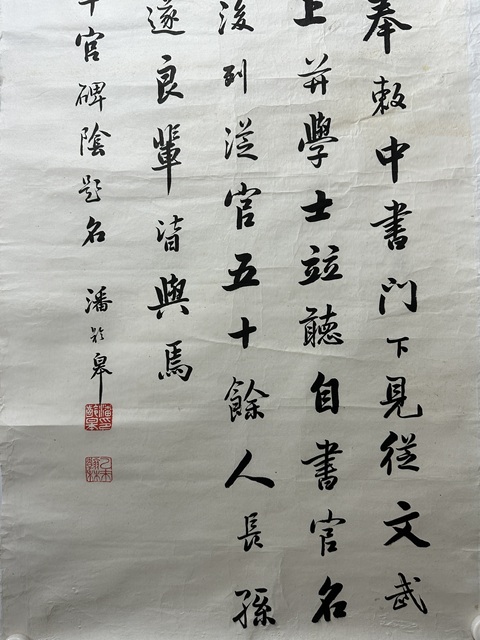 奉敕中書門下見從文武
上并學士竝聽自書官名
後列從官五十餘人長孫
遂良輩皆與焉
官碑陰題名 潘齡皋
潘印齡皋
乙未翰林